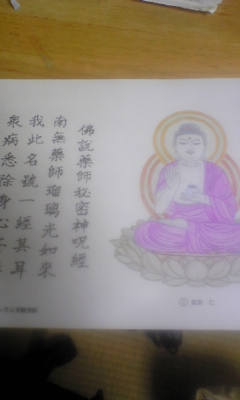 佛説藥師秘密神呪經
南無藥師瑠璃光如来
我此名號一經其耳
衆病悉除身心